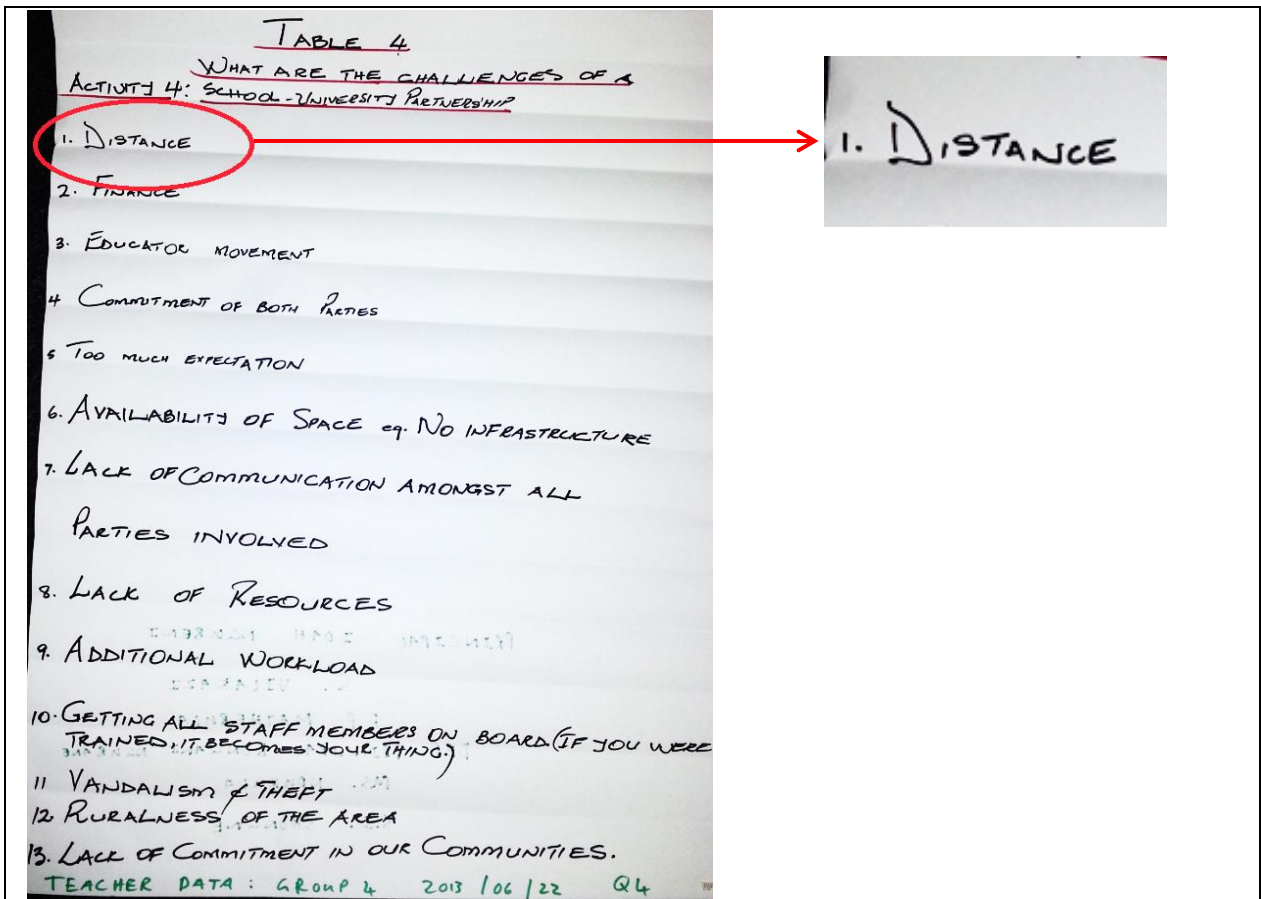 TABLE 4
WHAT ARE THE CHALLENGES OF A
ACTIVITY 4: SCHOOL-UNIVERSITY PARTNERSHIP
1. DISTANCE
2. FINANCE
3. EDUCATOR MOVEMENT
4 COMMITMENT OF BOTH PARTIES
5 TOO MUCH EXPECTATION
6. AVAILABILITY OF SPACE eg. NO INFRASTRUCTURE
7. LACK OF COMMUNICATION AMONGST ALL
PARTIES INVOLVED
8. LACK OF RESOURCES
9. ADDITIONAL WORKLOAD
10. GETTING ALL STAFF MEMBERS ON BOARD (IF YOU WERE
TRAINED, IT BECOMES YOUR THING.)
11 VANDALISM & THEFT
12 RURALNESS OF THE AREA
13. LACK OF COMMITMENT IN OUR COMMUNITIES.
TEACHER DATA: GROUP 4 2013/06/22 Q4
1. DISTANCE